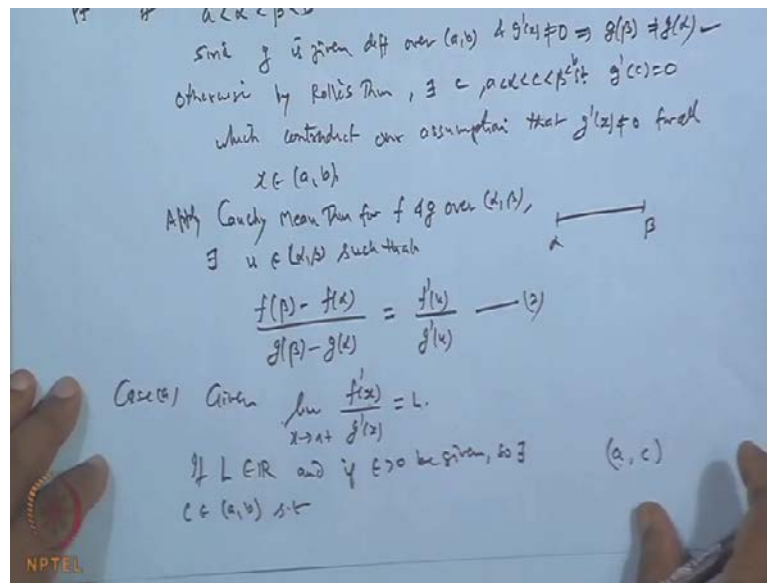 Pf If a<α<β<b
Since g is given diff over (a,b) & g'(x)≠0 ⇒ g(β)≠g(α) –
otherwise by Rolle's Thm, ∃ c, a<α<c<β<b st g'(c)=0
which contradict our assumption that g'(x)≠0 for all
x∈(a,b)
Apply Cauchy Mean Thm for f & g over (α,β),
∃ u ∈ (α,β) such that
α β
f(β) - f(α) / g(β) - g(α) = f'(u) / g'(u) —— (2)
Case(a) Given lim x→a+ f'(x) / g'(x) = L.
If L ∈ R and if ε>0 be given, so ∃ (a, c)
c ∈ (a,b) s.t
NPTEL